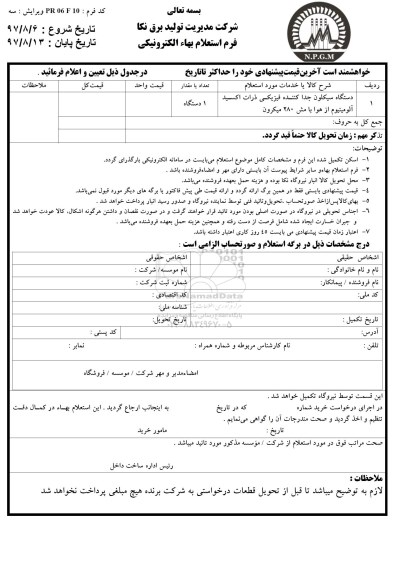 بسمه تعالی
کد فرم : PR 06 F 10 ویرایش : سه
شرکت مدیریت تولید برق نکا
تاریخ شروع : ۹۷/۸/۶
فرم استعلام بهاء الکترونیکی
تاریخ پایان : ۹۷/۸/۱۳
N.P.G.M
خواهشمند است آخرین قیمت پیشنهادی خود را حداکثر تا تاریخ در جدول ذیل تعیین و اعلام فرمائید .
ردیف شرح کالا یا خدمات مورد استعلام تعداد یا مقدار قیمت واحد قیمت کل ملاحظات
۱ دستگاه سیکلون جدا کننده فیزیکسی ذرات اکسید آلومینیوم از هوا با مش ۲۸۰ میکرون ۱ دستگاه
جمع کل به حروف:
تذکر مهم : زمان تحویل کالا حتماً قید گردد.
توضیحات:
۱- اسکن تکمیل شده این فرم و مشخصات کامل موضوع استعلام می‌بایست در سامانه الکترونیکی بارگذاری گردد.
۲- فرم استعلام بهاء و سایر شرایط پیوست آن بایستی دارای مهر و امضاء فروشنده باشد .
۳- محل تحویل کالا انبار نیروگاه نکا بوده و هزینه حمل بعهده فروشنده میباشد.
۴- قیمت پیشنهادی بایستی فقط در همین برگه ارائه گردد و ارائه قیمت طی پیش فاکتور یا برگه های دیگر مورد قبول نمی‌باشد.
۵- بهای کالا پس از اخذ صورتحساب ،تحویل و تائید فنی توسط نماینده نیروگاه و صدور رسید انبار پرداخت خواهد شد .
۶- اجناس تحویلی در نیروگاه در صورت اصلی بودن مورد تائید قرار خواهند گرفت و در صورت نقصان و داشتن هرگونه اشکال، کالا عودت خواهد شد
و جبران خسارت ایجاد شده شامل فرصت از دست رفته و همچنین هزینه حمل بعهده فروشنده می‌باشد .
۷- اعتبار زمان قیمت پیشنهادی می بایست ۴۵ روز کاری اعتبار داشته باشد.
درج مشخصات ذیل در برگه استعلام و صورتحساب الزامی است :
اشخاص حقیقی اشخاص حقوقی
نام و نام خانوادگی : نام موسسه/ شرکت :
نام فروشنده / پیمانکار: شماره ثبت شرکت :
کد ملی: کد اقتصادی :
شناسه ملی:
تاریخ تکمیل : تاریخ تحویل:
آدرس: کد پستی :
تلفن : نام کارشناس مربوطه و شماره همراه : نمابر :
امضاء مدیر و مهر شرکت / موسسه / فروشگاه
این قسمت توسط نیروگاه تکمیل خواهد شد .
در اجرای درخواست خرید شماره که در تاریخ به اینجانب ارجاع گردید . این استعلام بهاء در کمال دقت
تنظیم و اخذ گردید و صحت مندرجات آن را گواهی می‌نمایم .
تاریخ : مامور خرید
صحت مراتب فوق در مورد استعلام از شرکت / مؤسسه مذکور مورد تائید میباشد .
رئیس اداره ساخت داخل
ملاحظات :
لازم به توضیح میباشد تا قبل از تحویل قطعات درخواستی به شرکت برنده هیچ مبلغی پرداخت نخواهد شد